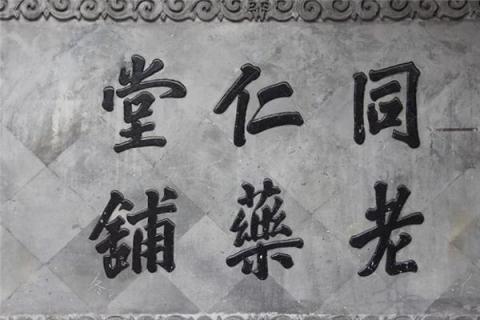 同仁堂
老藥舖